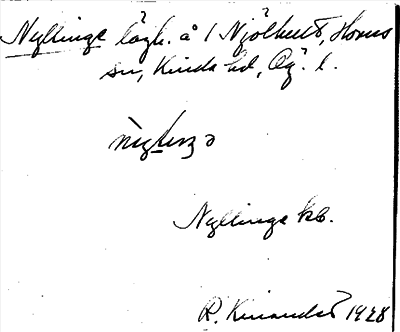 Nyllinge lägh. å 1 Njölhult, Horns
sn, Kinda hd, Ög. l.
Nyllinge kb.
R. Kinander 1928